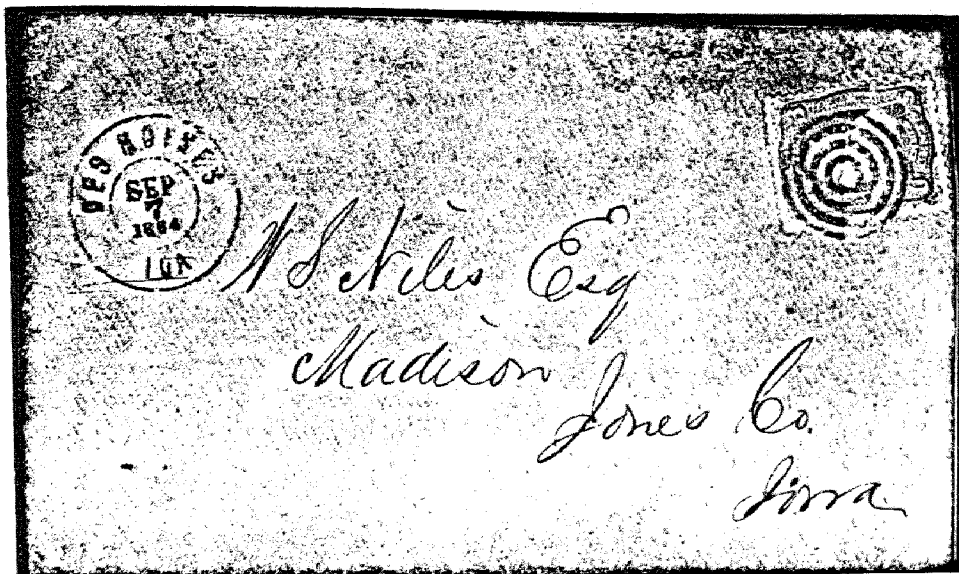 DES MOINES
SEP
7
1864
IOA
N S Niles Esq
Madison
Jones Co.
Iowa